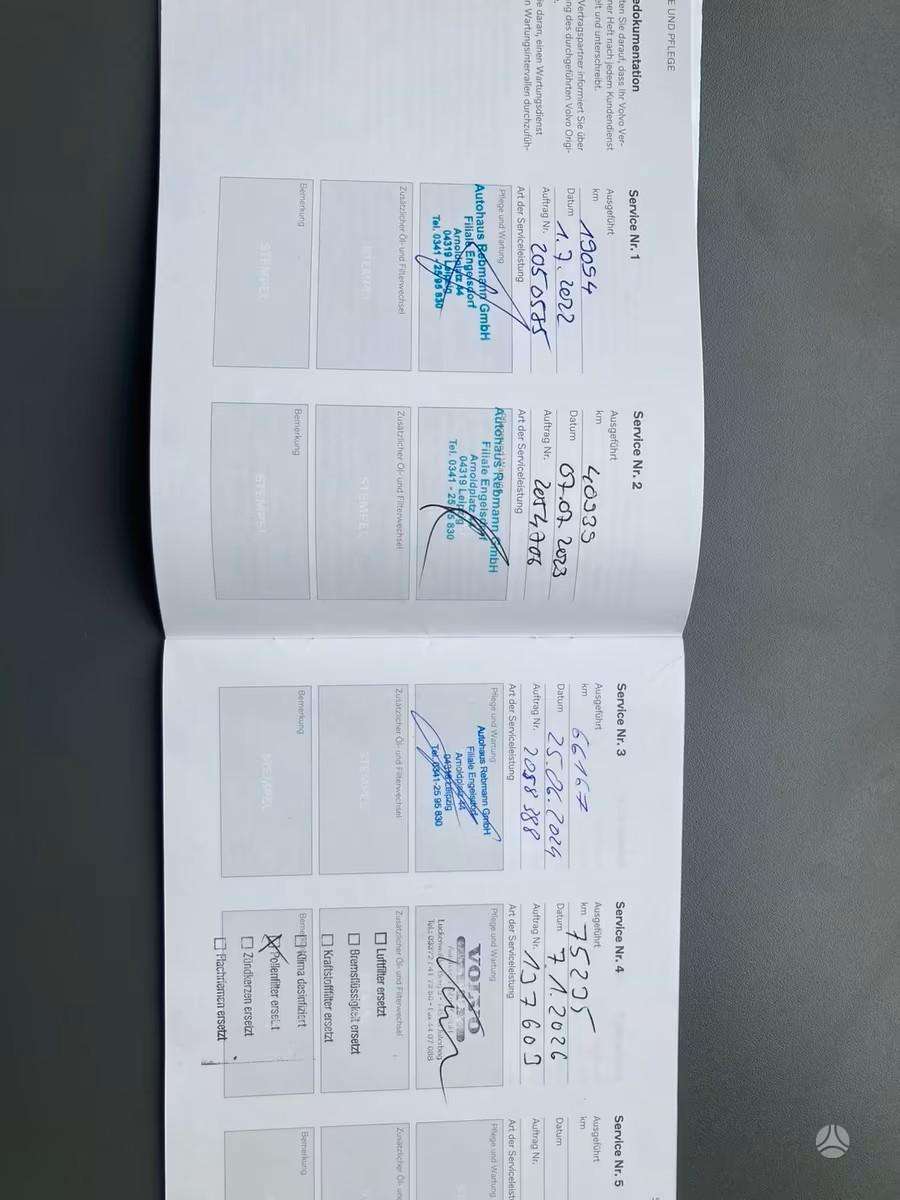 E UND PFLEGE
edokumentation
ten Sie darauf, dass Ihr Volvo Ver-
ner Heft nach jedem Kundendienst
elt und unterschreibt.
Vertragspartner informiert Sie über
ng des durchgeführten Volvo Origi-
ie daran, einen Wartungsdienst
n Wartungsintervallen durchzufüh-
Service Nr. 1
Ausgeführt
km 19094
Datum 1.7.2022
Auftrag Nr. 2050585
Art der Serviceleistung
Pflege und Wartung
Autohaus Rebmann GmbH
Filiale Engelsdorf
Arnoldplatz 44
04319 Leipzig
Tel. 0341 - 25 95 830
Zusätzlicher Öl- und Filterwechsel
STEMPEL
Bemerkung
STEMPEL
Service Nr. 2
Ausgeführt
km 40939
Datum 07.07.2023
Auftrag Nr. 2054706
Art der Serviceleistung
Autohaus Rebmann GmbH
Filiale Engelsdorf
Arnoldplatz
04319 Leipzig
Tel. 0341 - 25 95 830
Zusätzlicher Öl- und Filterwechsel
STEMPEL
Bemerkung
STEMPEL
Service Nr. 3
Ausgeführt
km 66167
Datum 25.06.2024
Auftrag Nr. 2058388
Art der Serviceleistung
Pflege und Wartung
Autohaus Rebmann GmbH
Filiale Engelsdorf
Arnoldplatz 44
04319 Leipzig
Tel. 0341-25 95 830
Zusätzlicher Öl- und Filterwechsel
STEMPEL
Bemerkung
STEMPEL
Service Nr. 4
Ausgeführt
km 75295
Datum 7.1.2026
Auftrag Nr. 197609
Art der Serviceleistung
Pflege und Wartung
VOLVO
Zusätzlicher Öl- und Filterwechsel
Luftfilter ersetzt
Bremsflüssigkeit ersetzt
Kraftstofffilter ersetzt
Klima desinfiziert
Pollenfilter ersetzt
Zündkerzen ersetzt
Flachriemen ersetzt
Service Nr. 5
Ausgeführt
km
Datum
Auftrag Nr.
Art der Serviceleistung
Pflege und Wartung
Zusätzlicher Öl- un
Bemerkung